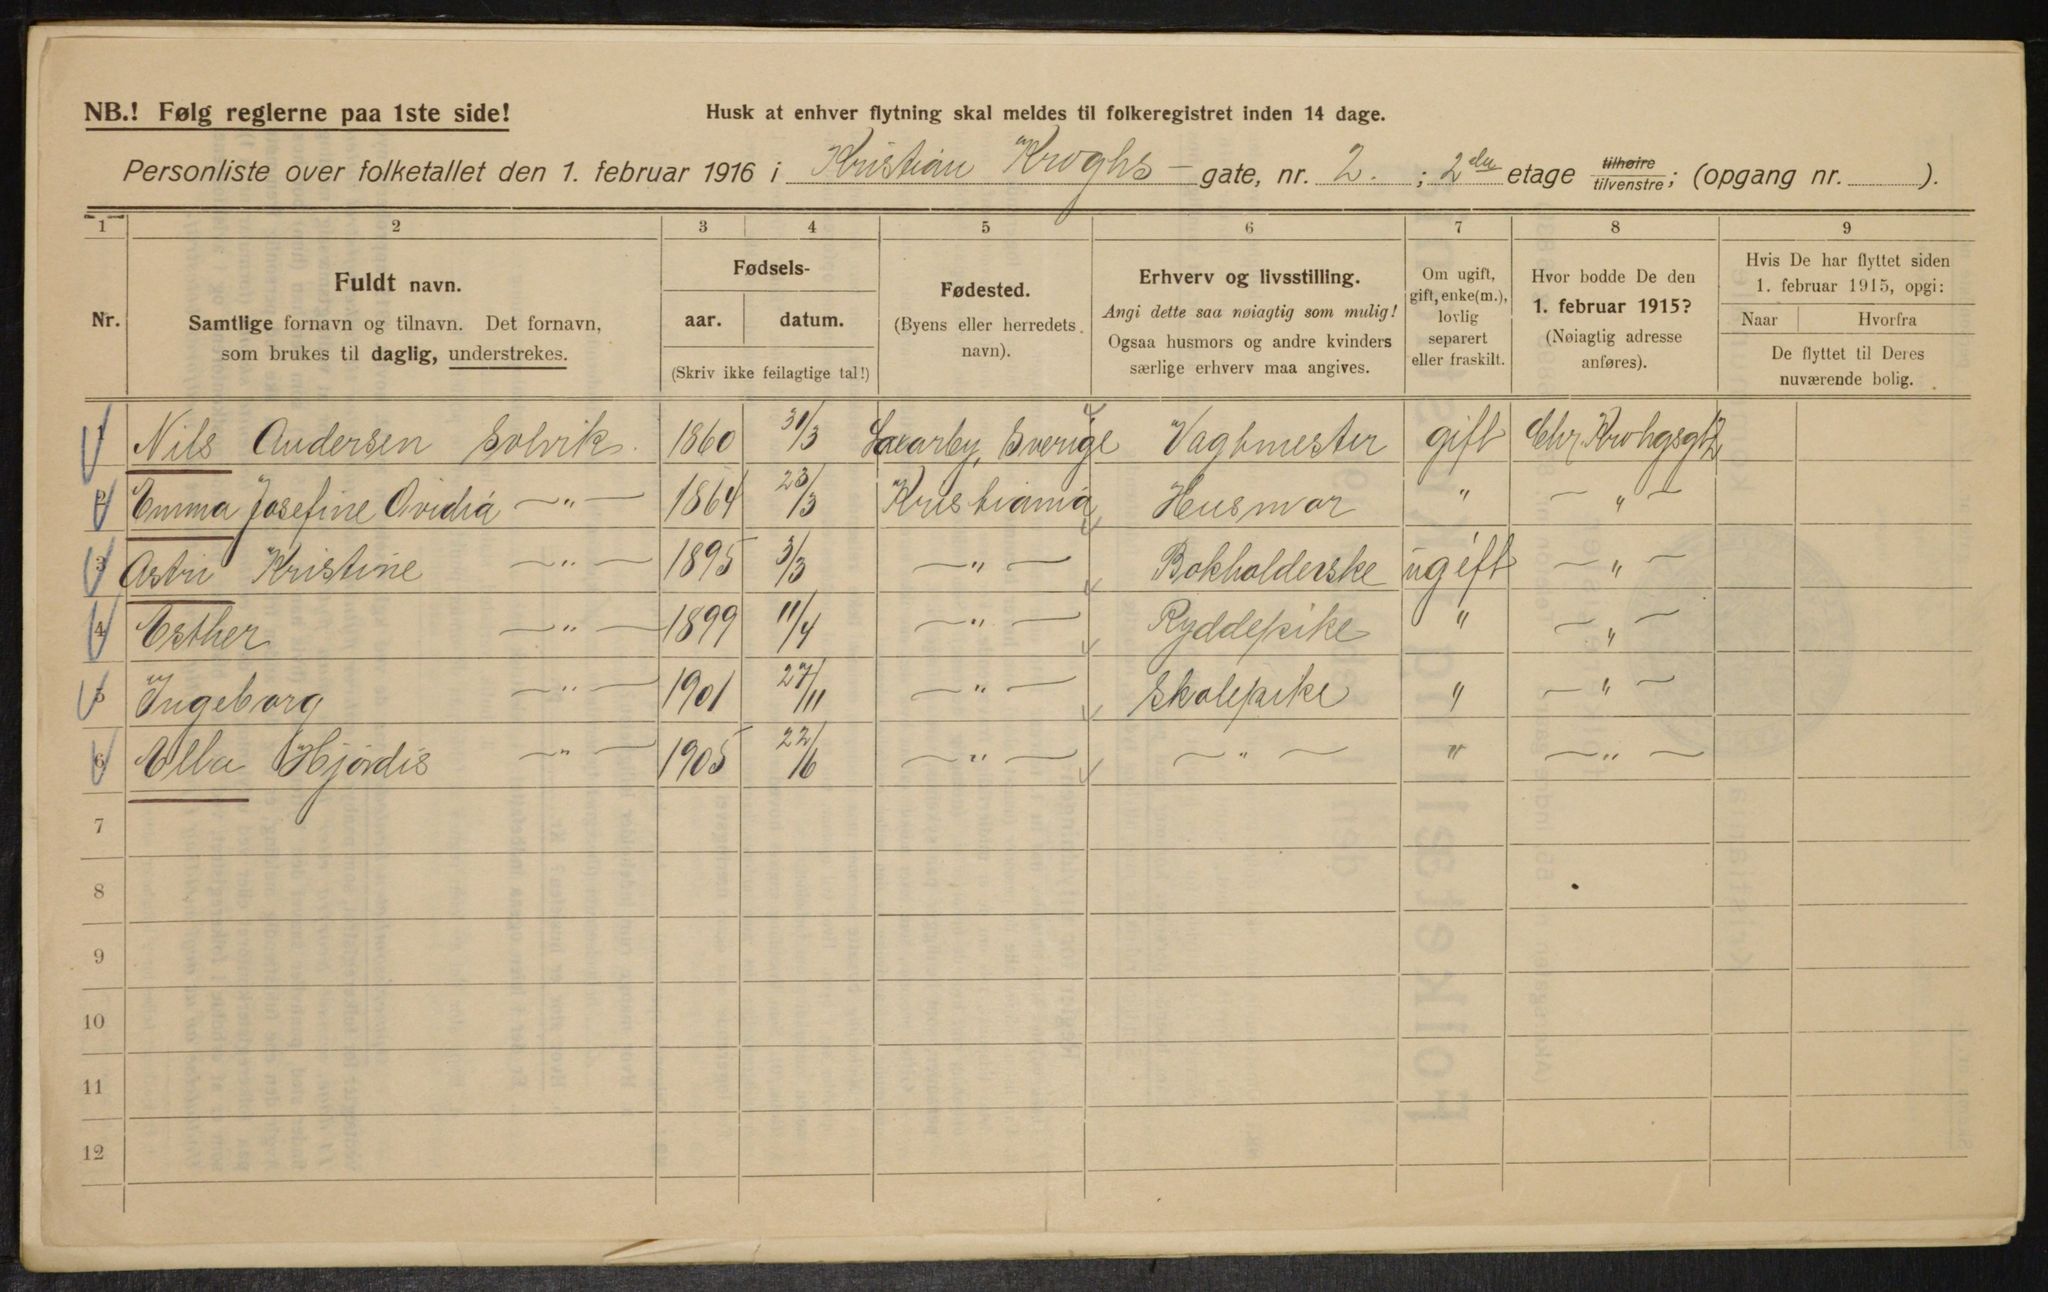 NB.! Følg reglerne paa 1ste side!
Husk at enhver flytning skal meldes til folkeregistret inden 14 dage.
Personliste over folketallet den 1. februar 1916 i Kristian Kroghs - gate, nr. 2. ; 2den etage tilhøire tilvenstre; (opgang nr. ).
1 2 3 4 5 6 7 8 9
Nr.
Fuldt navn.
Samtlige fornavn og tilnavn. Det fornavn,
som brukes til daglig, understrekes.
Fødsels-
aar. datum.
(Skriv ikke feilagtige tal!)
Fødested.
(Byens eller herredets
navn).
Erhverv og livsstilling.
Angi dette saa nøiagtig som mulig!
Ogsaa husmors og andre kvinders
særlige erhverv maa angives.
Om ugift,
gift, enke(m.),
lovlig
separert
eller fraskilt.
Hvor bodde De den
1. februar 1915?
(Nøiagtig adresse
anføres).
Hvis De har flyttet siden
1. februar 1915, opgi:
Naar Hvorfra
De flyttet til Deres
nuværende bolig.
1 Nils Andersen Solvik. 1860 31/3 Sverige Vagtmester gift Chr. Krohgsgt 2
2 Emma Josefine Ovidia —"— 1864 23/3 Kristiania Husmor " —"—
3 Astri Kristine —"— 1895 3/3 —"— Bokholderske ugift —"—
4 Esther —"— 1899 11/4 —"— Ryddepike " —"—
5 Ingeborg —"— 1901 27/11 —"— Skolepike " —"—
6 Ella Hjördis —"— 1905 22/6 —"— —"— " —"—
7
8
9
10
11
12